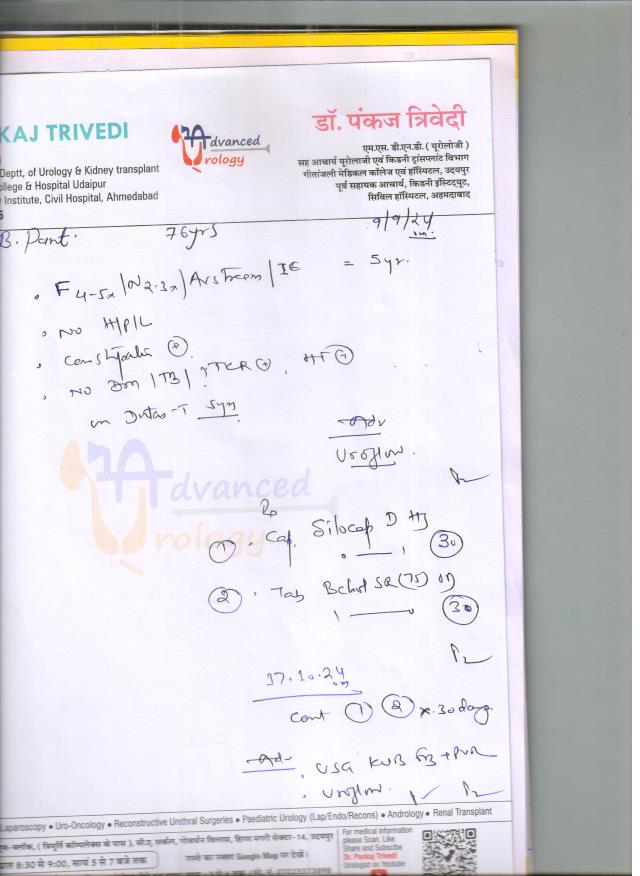 KAJ TRIVEDI
Deptt, of Urology & Kidney transplant
ollege & Hospital Udaipur
Institute, Civil Hospital, Ahmedabad
Advanced
Urology
डॉ. पंकज त्रिवेदी
एम.एस. डी.एन.बी. ( यूरोलोजी )
सह आचार्य यूरोलाजी एवं किडनी ट्रांसप्लांट विभाग
गीतांजली मेडिकल कॉलेज एवं हॉस्पिटल, उदयपुर
पूर्व सहायक आचार्य, किडनी इंस्टिट्यूट,
सिविल हॉस्पिटल, अहमदाबाद
B. Pant. 76yrs 9/9/24
F4-5x/N2-3x/ = 5yr.
No H/P/L
Constipation +
No DM/TB/ TKR +, HT +
on Dutas-T 5yr
Adv
Uroflow.
Advanced
Urology
Rx
1 Cap. Silocap D 30
2 Tab SR (75) 30
17.10.24
Cont 1 2 x 30 days
Adv USG KUB + PVR
Uroflow.
Laparoscopy • Uro-Oncology • Reconstructive Urethral Surgeries • Paediatric Urology (Lap/Endo/Recons) • Andrology • Renal Transplant
ब्लॉक, ( त्रिमूर्ति कॉम्पलेक्स के पास ), सी.ए. सर्कल, गोवर्धन विलास, हिरण मगरी सेक्टर-14, उदयपुर
प्रातः 8:30 से 9:00, सायं 5 से 7 बजे तक
रास्ते का नक्शा Google Map पर देखें।
For medical information
please Scan, Like
Share and Subscribe
Dr. Pankaj Trivedi
Urologist on Youtube